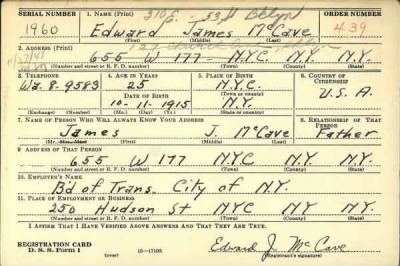 SERIAL NUMBER 1. NAME (Print) 310 E. - 53rd Bklyn ORDER NUMBER
1960 Edward James McCave 439
(First) (Middle) (Last)
2. ADDRESS (Print)
655 W 177 - N.Y.C. N.Y. N.Y.
(Number and street or R. F. D. number) (Town) (County) (State)
3. TELEPHONE 4. AGE IN YEARS 5. PLACE OF BIRTH 6. COUNTRY OF CITIZENSHIP
Wa. 8-9583 25 N.Y.C.
DATE OF BIRTH (Town or county) U.S.A.
10-11-1915 N.Y.
(Exchange) (Number) (Mo.) (Day) (Yr.) (State or country)
7. NAME OF PERSON WHO WILL ALWAYS KNOW YOUR ADDRESS 8. RELATIONSHIP OF THAT PERSON
James J. McCave Father
(Mr., Mrs., Miss) (First) (Middle) (Last)
9. ADDRESS OF THAT PERSON
655 W 177 N.Y.C N.Y. N.Y.
(Number and street or R. F. D. number) (Town) (County) (State)
10. EMPLOYER'S NAME
B'd of Trans. City of N.Y.
11. PLACE OF EMPLOYMENT OR BUSINESS
250 Hudson St NYC N.Y. N.Y.
(Number and street or R. F. D. number) (Town) (County) (State)
I AFFIRM THAT I HAVE VERIFIED ABOVE ANSWERS AND THAT THEY ARE TRUE.
REGISTRATION CARD
D. S. S. Form 1 16-17105 Edward J. McCave
(over) (Registrant's signature)